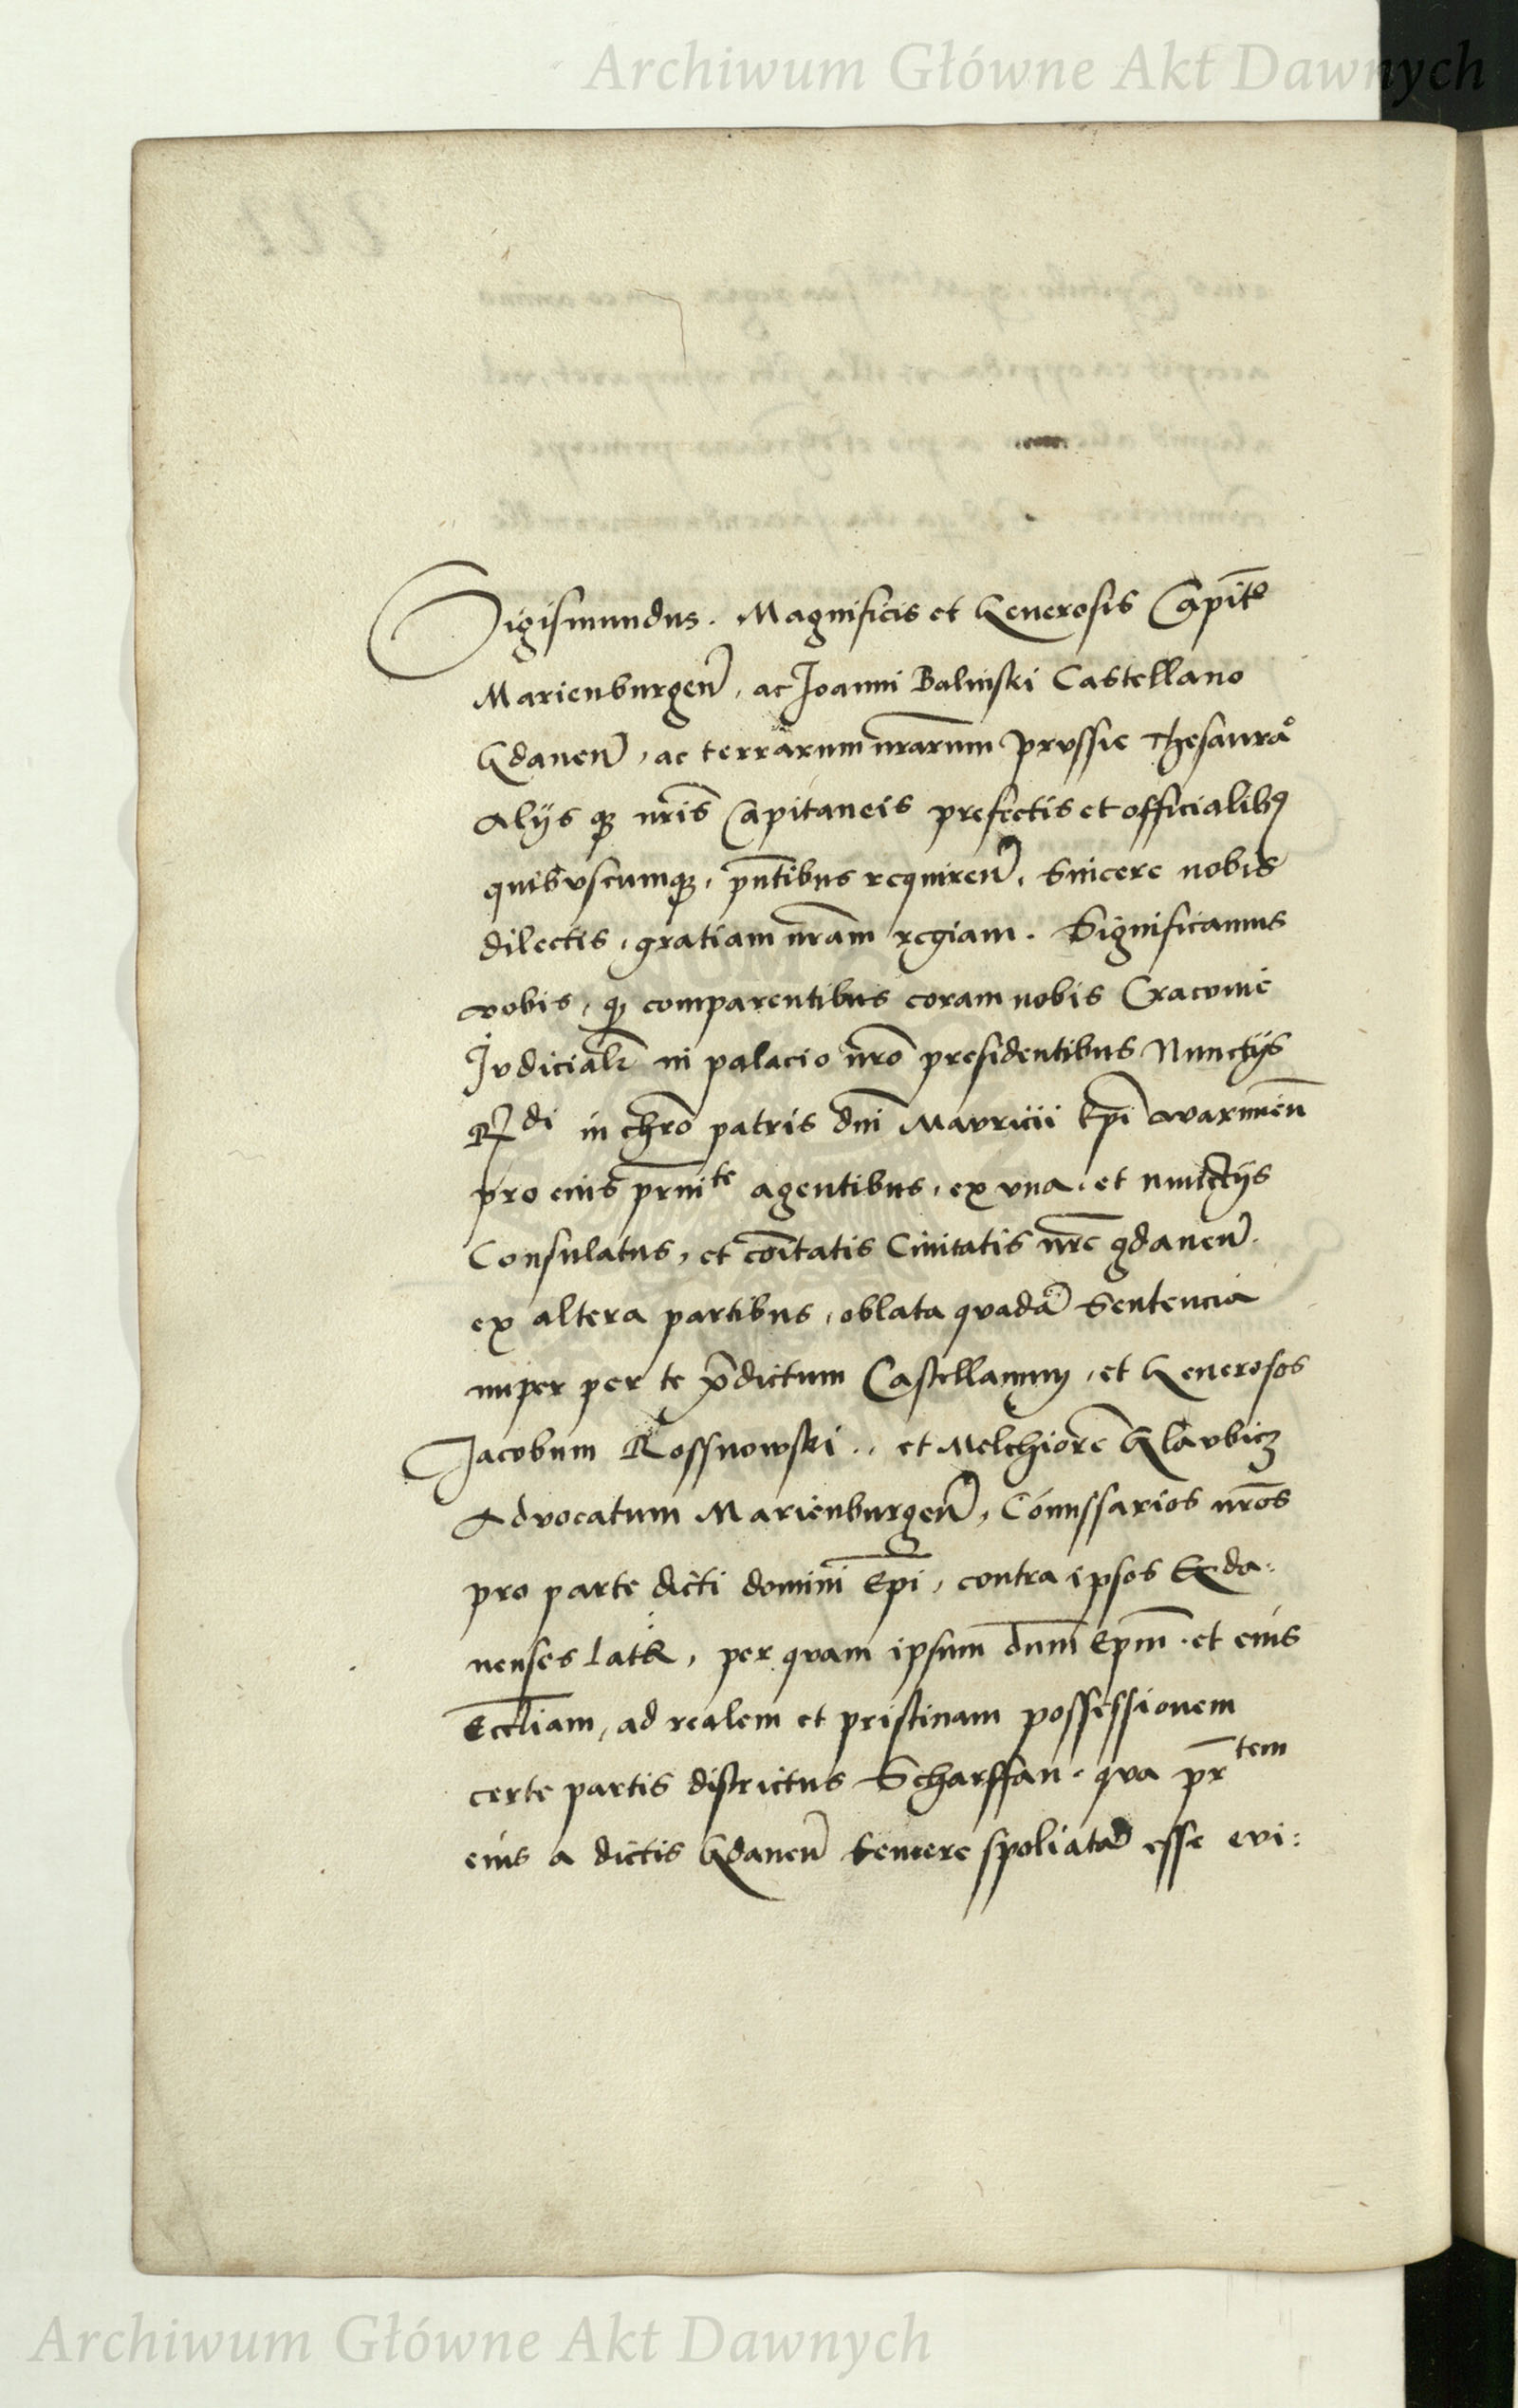 Archiwum Główne Akt Dawnych
Sigismundus. Magnificis et Generosis Capitō
Marienburgeñ, ac Joanni Balinski Castellano
Gdaneñ, ac terrarum nrārum Prussie Thesaurao
Alijs qȝ nrīs Capitaneis prefectis et officialibꝯ
quibuscumqȝ, pñtibus requireñ, Sincere nobis
dilectis, gratiam nrām regiam. Significamus
vobis, qȝ comparentibus coram nobis Cracovie
Judicialr in palacio nrō presidentibus Nunctijs
Rdi in chrō patris dnī Mauricii Epī warmieñ
pro eius prnīte agentibus, ex una, et nunctijs
Consulatus, et coītatis Civitatis nrē gdaneñ.
ex altera partibus, oblata quadā Sentencia
nuper per te p̄dictum Castellanum, et Generosos
Jacobum Rossnowski., et Melchiorē Glaubicz
Advocatum Marienburgeñ, Com̄issarios nrōs
pro parte dicti domini Epī, contra ipsos Gda:
nenses lata, per quam ipsum dnūm Epm̄. et eius
Eccliam, ad realem et pristinam possessionem
certe partis districtus Scharffau. qua prtem
eius a dictis Gdaneñ temere spoliatā esse evi:
Archiwum Główne Akt Dawnych